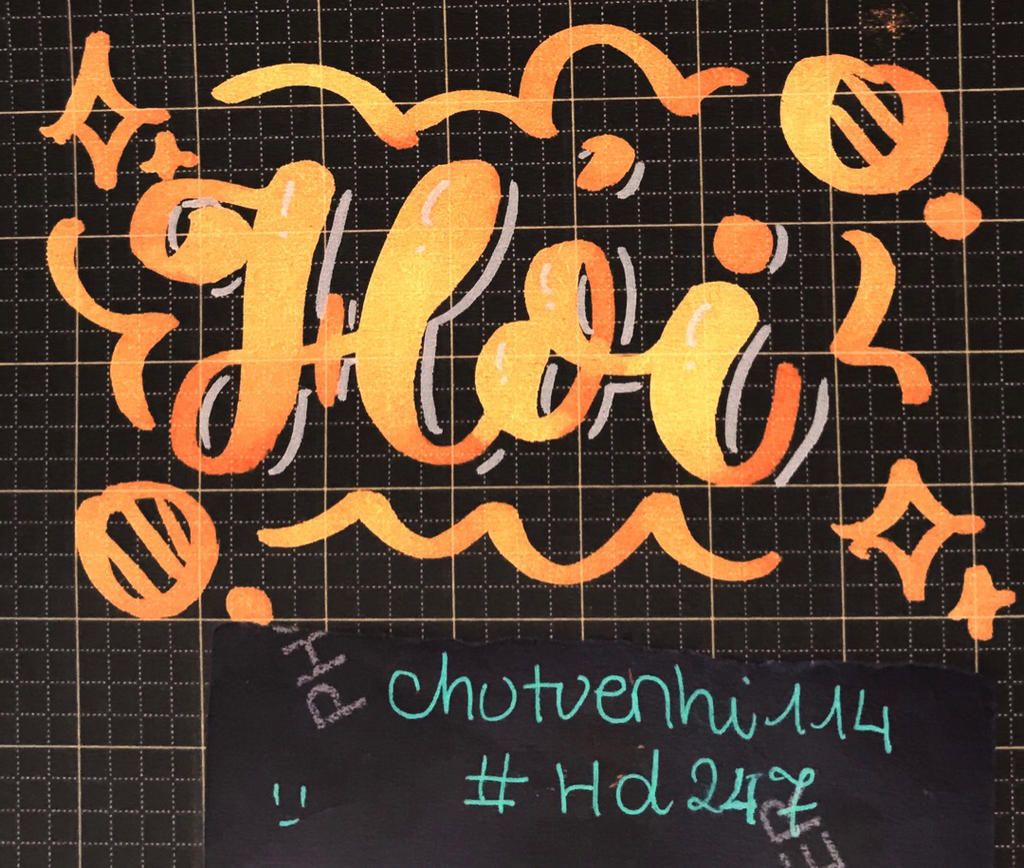 Hỏi
PH
chutuenhi114
#Hd247